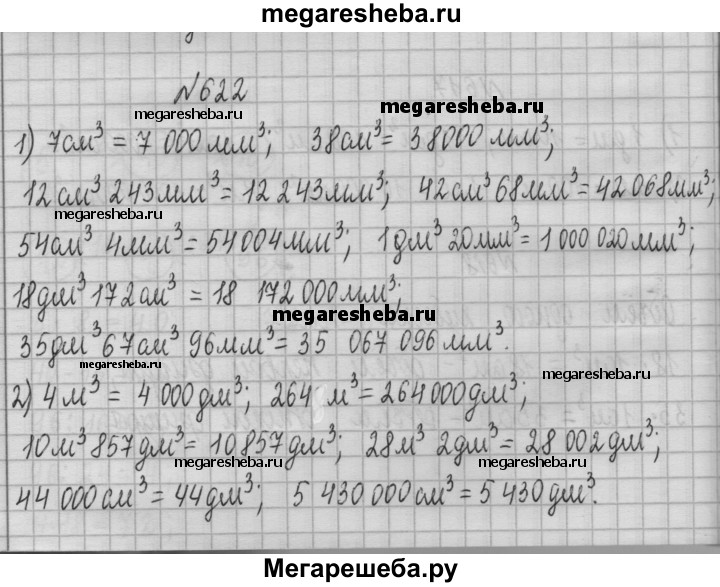 megaresheba.ru
№622
megaresheba.ru
megaresheba.ru
1) 7см³ = 7 000 мм³; 38см³ = 38000 мм³;
12см³ 243мм³ = 12 243мм³; 42см³ 68мм³ = 42 068мм³;
megaresheba.ru
54см³ 4мм³ = 54004мм³; 1дм³ 20мм³ = 1 000 020мм³;
18дм³ 172см³ = 18 172 000мм³;
megaresheba.ru
35дм³ 67см³ 96мм³ = 35 067 096мм³.
megaresheba.ru
megaresheba.ru
2) 4м³ = 4 000дм³; 264 м³ = 264000дм³;
10м³ 857дм³ = 10857дм³; 28м³ 2дм³ = 28 002дм³;
megaresheba.ru
megaresheba.ru
44 000см³ = 44дм³; 5 430 000см³ = 5 430дм³.
megaresheba.ru
Мегарешеба.ру